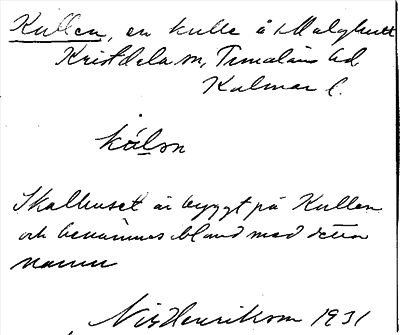 Kullen, en kulle å Malghult
Kristdala sn, Tunaläns hd
Kalmar l.
kɷ́lsn
Skolhuset är byggt på Kullen
och benämnes bland med detta
namn
Nils Henrikson 1931